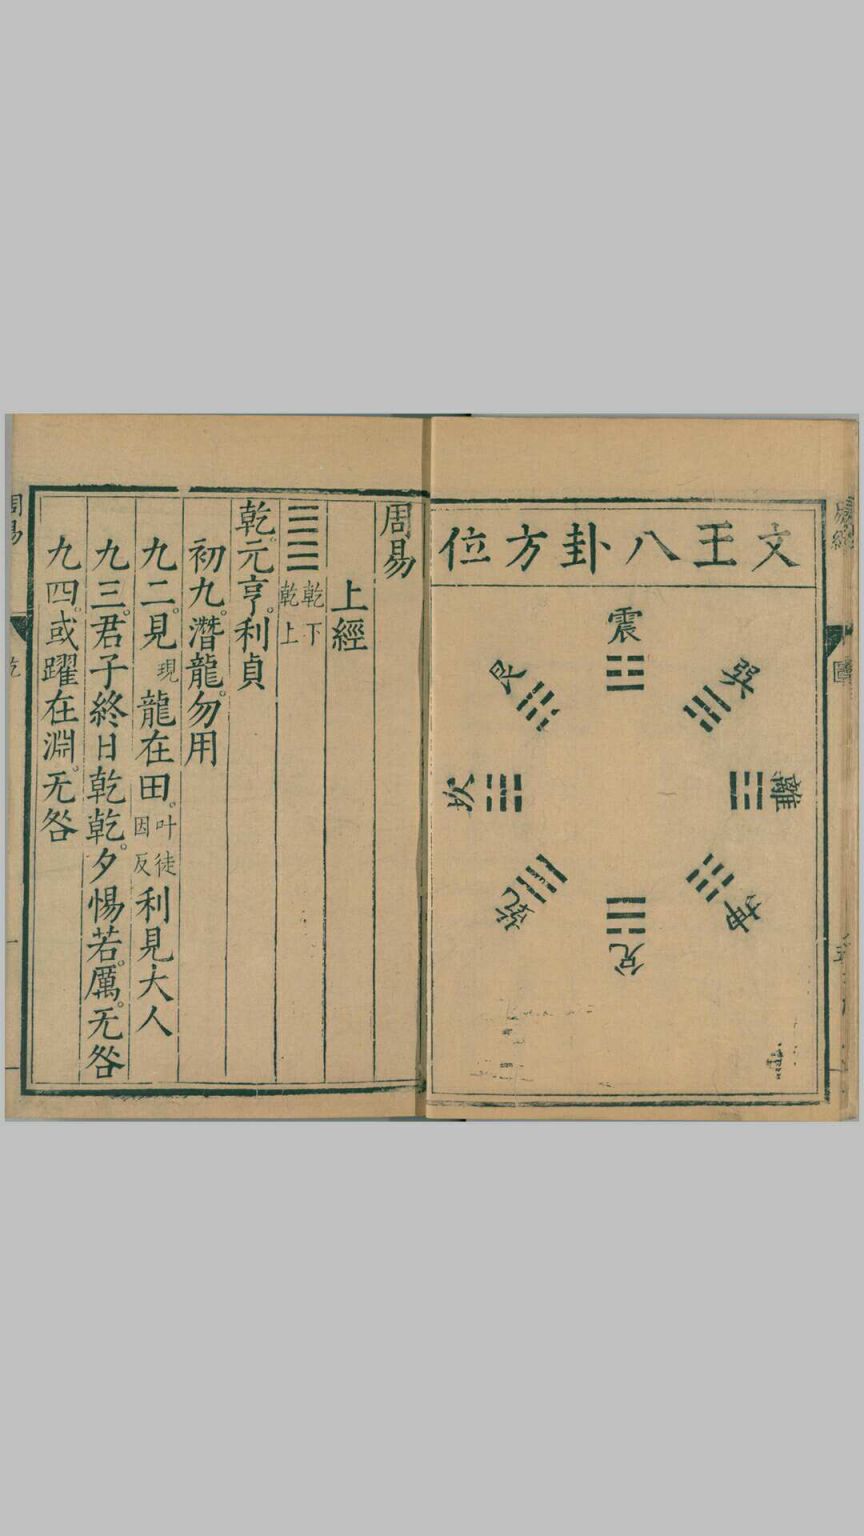 文王八卦方位
震
巽
離
坤
兌
乾
坎
艮
圖
周易
上經
乾下
乾上
乾。元亨。利貞
初九。潛龍。勿用
九二。見現龍在田。叶徒因反利見大人
九三。君子終日乾乾。夕惕若。厲。无咎
九四。或躍在淵。无咎
周易
乾